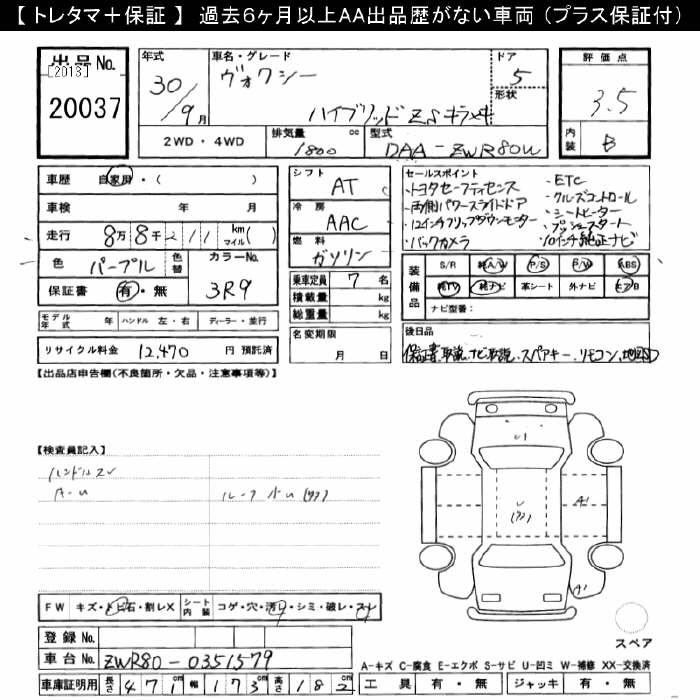 【 トレタマ＋保証 】 過去6ヶ月以上AA出品歴がない車両 (プラス保証付)
出品 No.
[2013]
20037
年式
30/9月
車名・グレード
ヴォクシー
ハイブリッド ZS キラメキ
ドア
5
形状
評価点
3.5
内装
B
2WD・4WD
排気量
1800 cc
型式
DAA-ZWR80W
車歴 自家用・( )
車検 年 月
走行 8万8千211 km マイル( )
色 パープル 色替
カラーNo. 3R9
保証書 有・無
モデル年式 年 ハンドル 左・右 ディーラー・並行
リサイクル料金 12,470 円 預託済
シフト AT
冷房 AAC
燃料 ガソリン
乗車定員 7 名
積載量 kg
総重量 kg
名変期限
月 日
セールスポイント
・トヨタセーフティセンス ・ETC
・両側パワースライドドア ・クルーズコントロール
・12インチフリップダウンモニター ・シートヒーター
・バックカメラ ・プッシュスタート
・10インチ純正ナビ
装備品
S/R 純A/W P/S P/W ABS
純TV 純ナビ 革シート 外ナビ エアB
ナビ型番:
後日品
保証書、取説、ナビ取説、スペアキー、リモコン、地図SD
【出品店申告欄(不良箇所・欠品・注意事項等)】
【検査員記入】
ハンドルスレ
A・U
ルーフ 小U (ワク)
U1
U
(ワク)
A1
A1
FW キズ・トビ石・割レX シート内装 コゲ・穴・汚レ・シミ・破レ・スレ
登録 No.
車台 No. ZWR80-0351579
車庫証明用 長さ 471cm 幅 173cm 高さ 182cm
スペア
A-キズ C-腐食 E-エクボ S-サビ U-凹ミ W-補修 XX-交換済
工具 有・無 ジャッキ 有・無